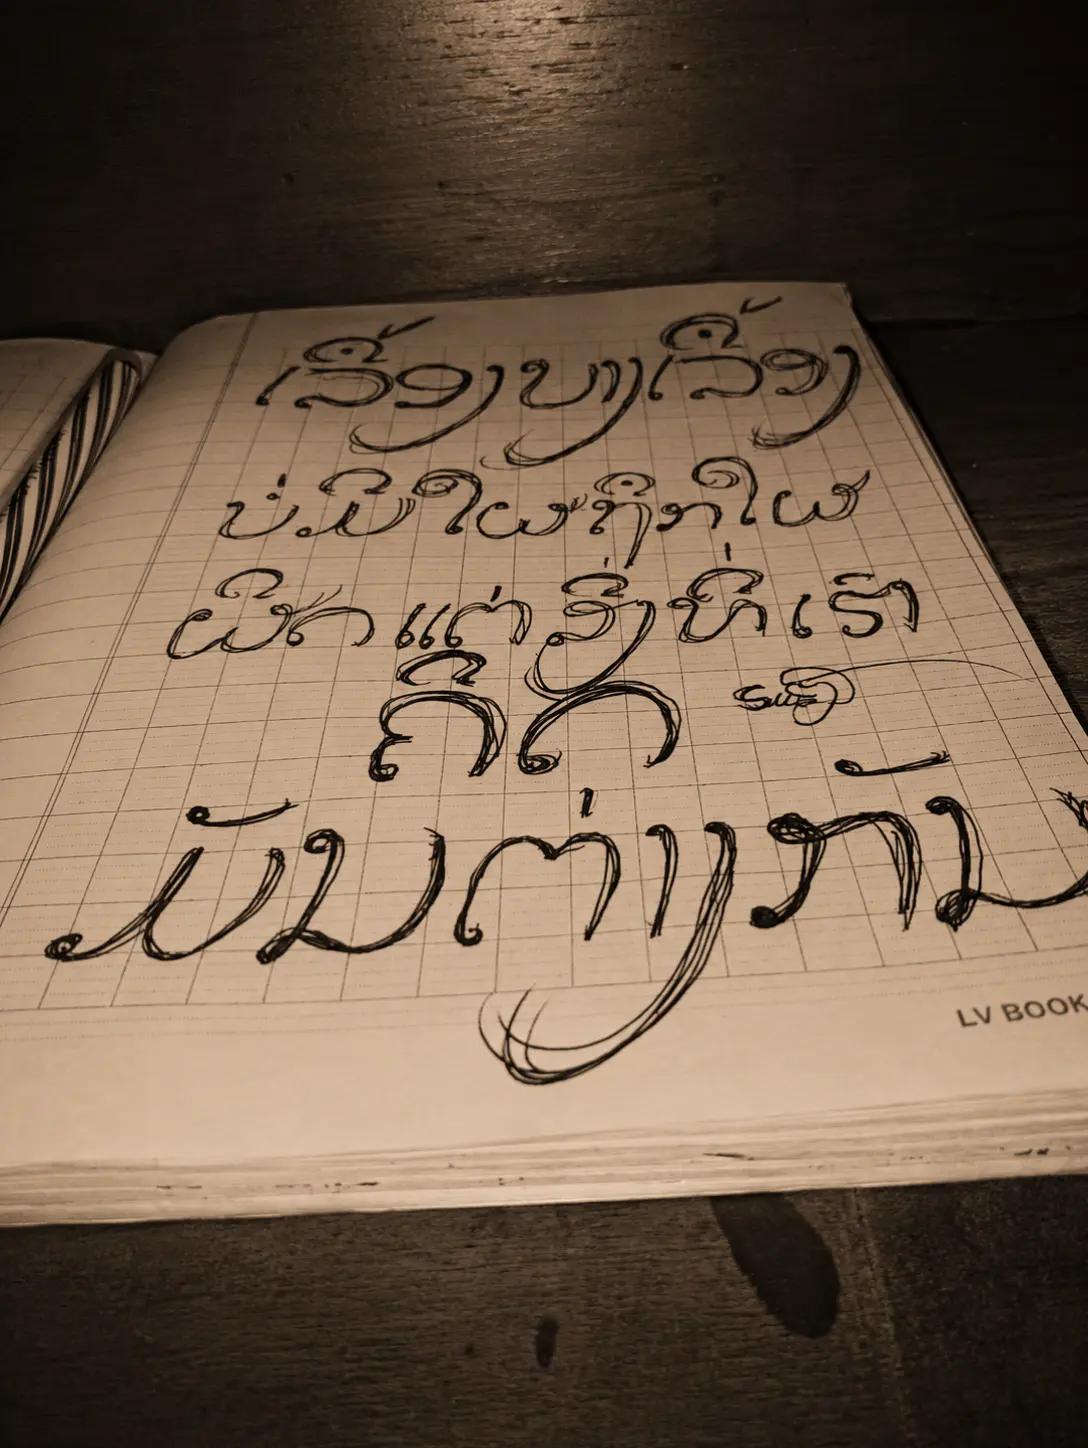 ເລື້ອງບາງເລື້ອງ
ບໍ່ມີໃຜຖືກໃຜ
ຜິດ ແຕ່ສິ່ງທີ່ເຮົາ
ຄິດ
ມັນຕ່າງກັນ
LV BOOK